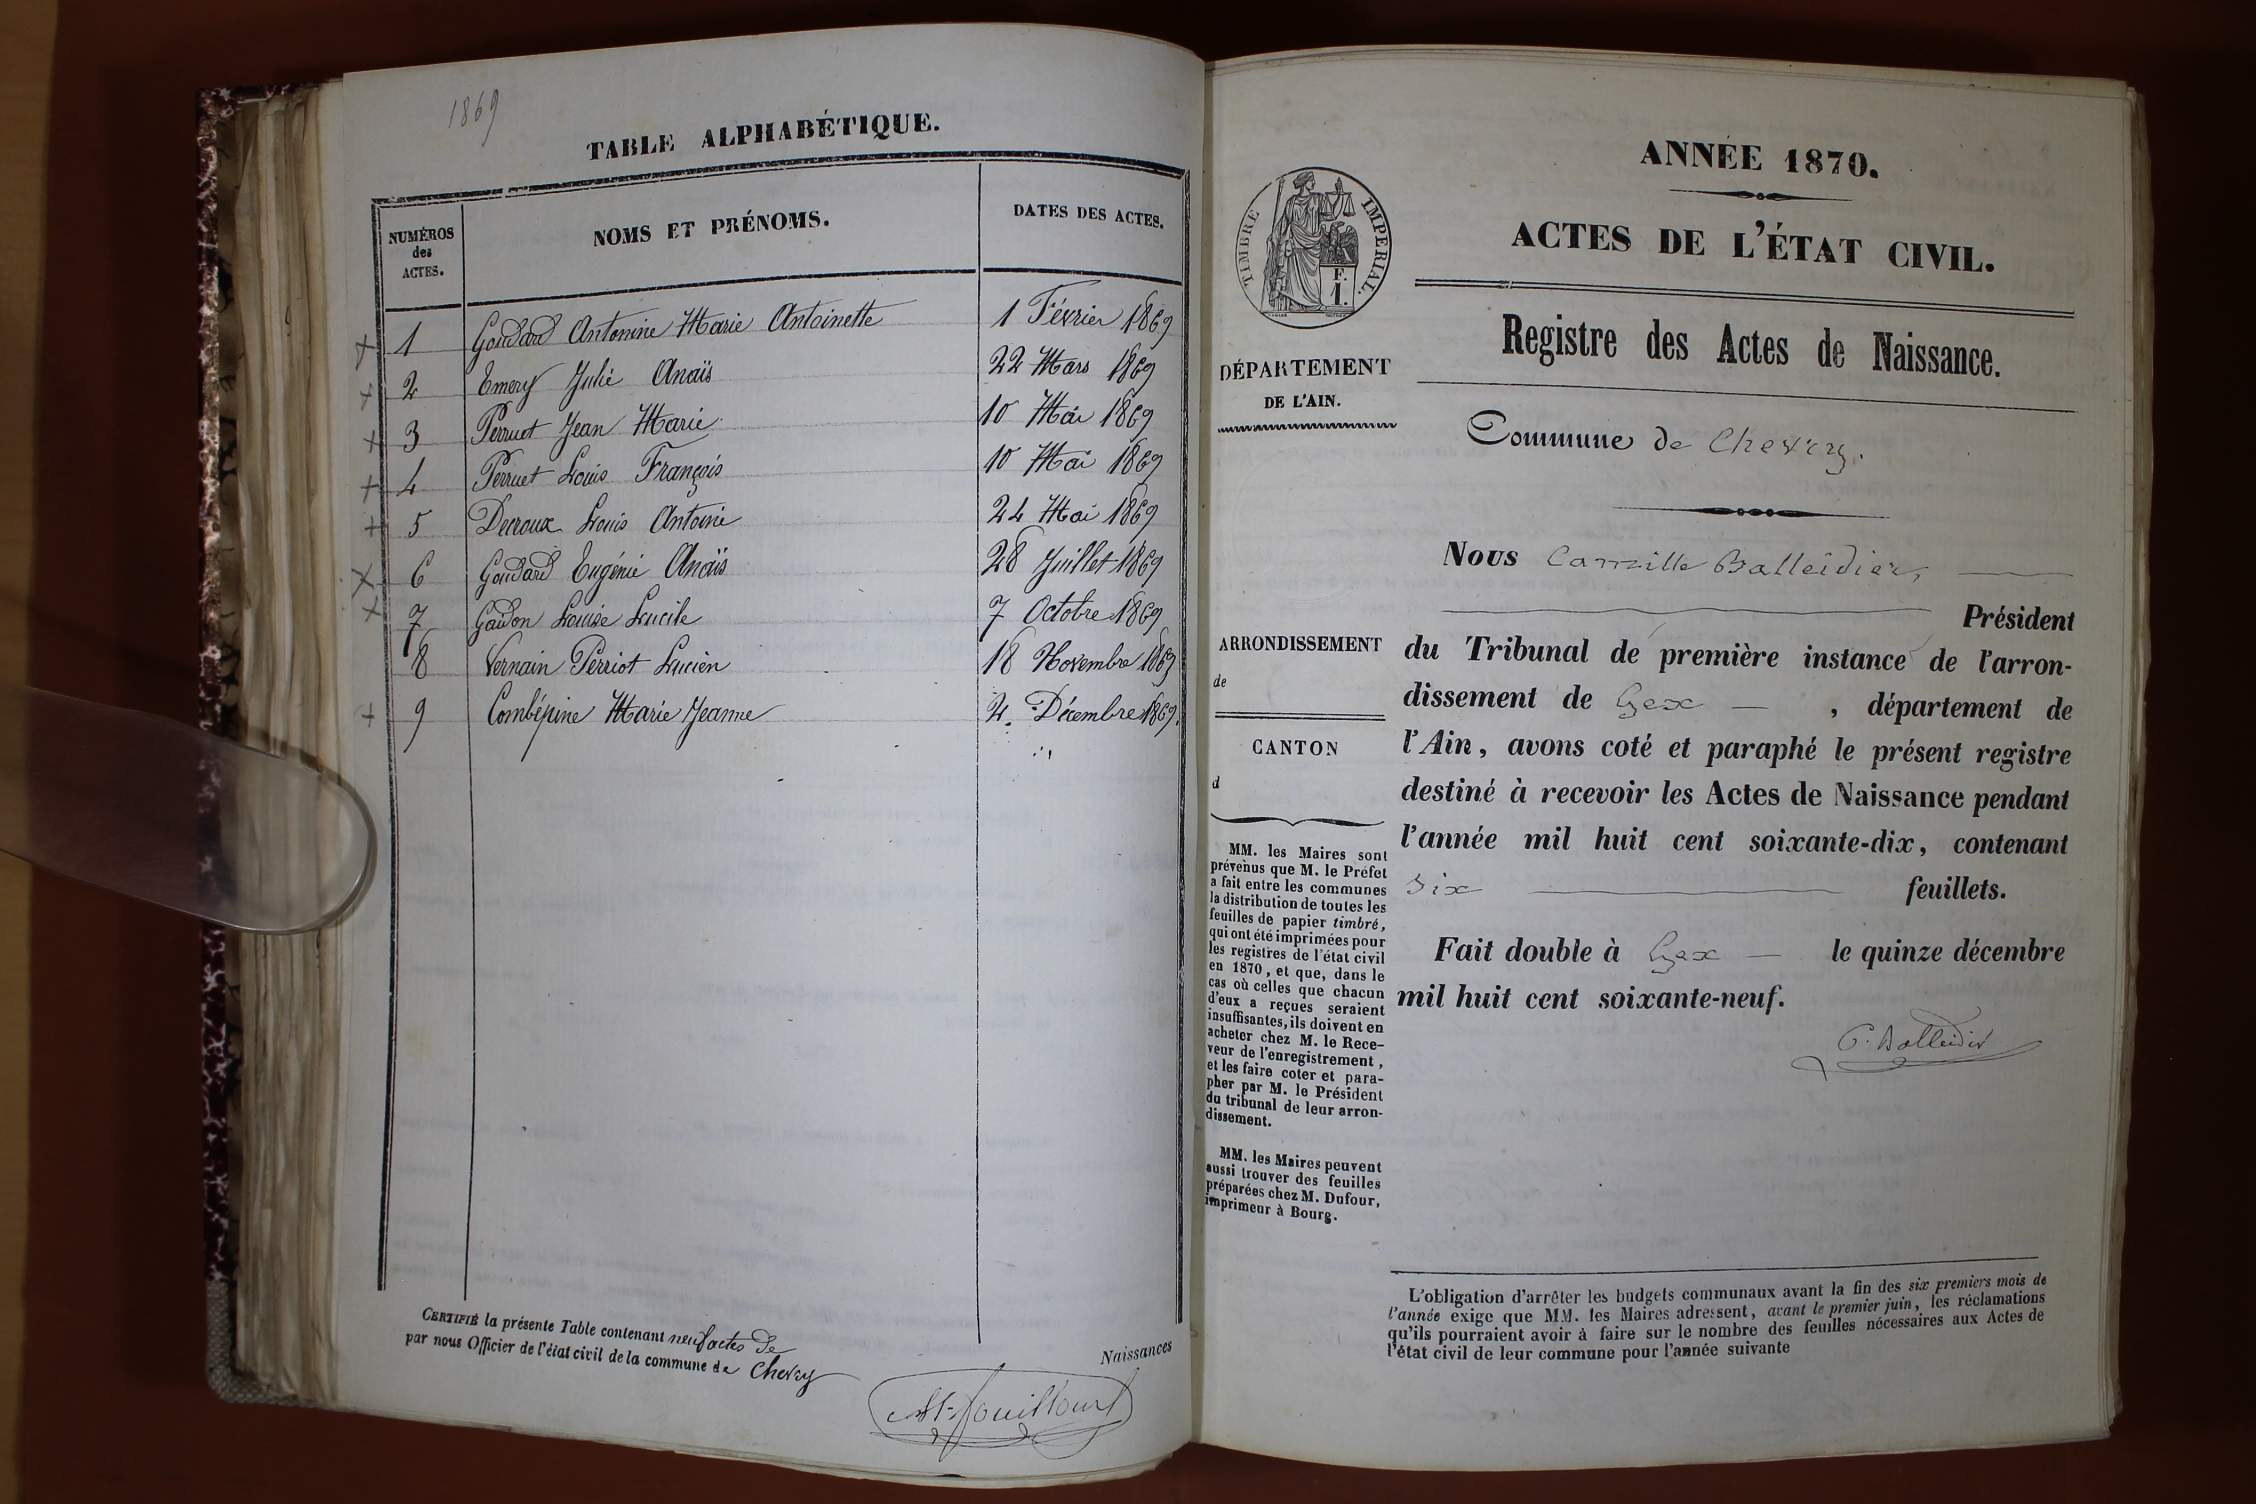 1869
TABLE ALPHABÉTIQUE.
NUMÉROS des ACTES.
NOMS ET PRÉNOMS.
DATES DES ACTES.
1 Goudard Antonine Marie Antoinette 1 Février 1869
2 Emery Julie Anaïs 22 Mars 1869
3 Perruet Jean Marie 10 Mai 1869
4 Perruet Louis François 10 Mai 1869
5 Decroux Louis Antoine 24 Mai 1869
6 Goudard Eugénie Anaïs 28 Juillet 1869
7 Gaidon Louise Lucile 7 Octobre 1869
8 Vernain Perriot Lucien 18 Novembre 1869
9 Combépine Marie Jeanne 2. Décembre 1869.
CERTIFIÉ la présente Table contenant neuf actes de
Naissances
par nous Officier de l'état civil de la commune de Chevry
TIMBRE IMPERIAL.
F.
1.
DÉPARTEMENT
DE L'AIN.
ARRONDISSEMENT
de
CANTON
d
MM. les Maires sont
prévenus que M. le Préfet
a fait entre les communes
la distribution de toutes les
feuilles de papier timbré,
qui ont été imprimées pour
les registres de l'état civil
en 1870, et que, dans le
cas où celles que chacun
d'eux a reçues seraient
insuffisantes, ils doivent en
acheter chez M. le Rece-
veur de l'enregistrement,
et les faire coter et para-
pher par M. le Président
du tribunal de leur arron-
dissement.
MM. les Maires peuvent
aussi trouver des feuilles
préparées chez M. Dufour,
imprimeur à Bourg.
ANNÉE 1870.
ACTES DE L'ÉTAT CIVIL.
Registre des Actes de Naissance.
Commune de Chevry.
Nous Camille Balleidier,
Président
du Tribunal de première instance de l'arron-
dissement de Gex — , département de
l'Ain, avons coté et paraphé le présent registre
destiné à recevoir les Actes de Naissance pendant
l'année mil huit cent soixante-dix, contenant
six feuillets.
Fait double à Gex — le quinze décembre
mil huit cent soixante-neuf.
C. Balleidier
L'obligation d'arrêter les budgets communaux avant la fin des six premiers mois de
l'année exige que MM. les Maires adressent, avant le premier juin, les réclamations
qu'ils pourraient avoir à faire sur le nombre des feuilles nécessaires aux Actes de
l'état civil de leur commune pour l'année suivante